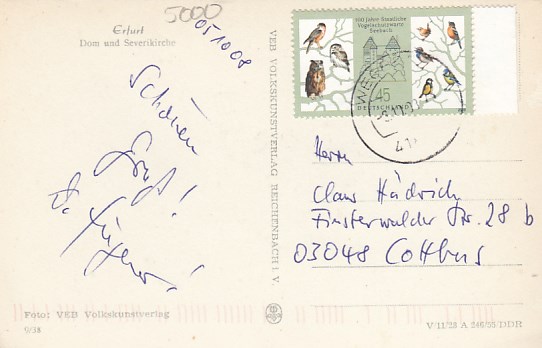 Erfurt
Dom und Severikirche
5000
051008
Schönen
Gruß!
VEB VOLKSKUNSTVERLAG REICHENBACH i. V.
100 Jahre Staatliche
Vogelschutzwarte
Seebach
45
DEUTSCHLAND
Herrn
Claus Hädrich
Finsterwalder Str. 28 b
03048 Cottbus
Foto: VEB Volkskunstverlag
9/38
V/11/28 A 246/55/DDR